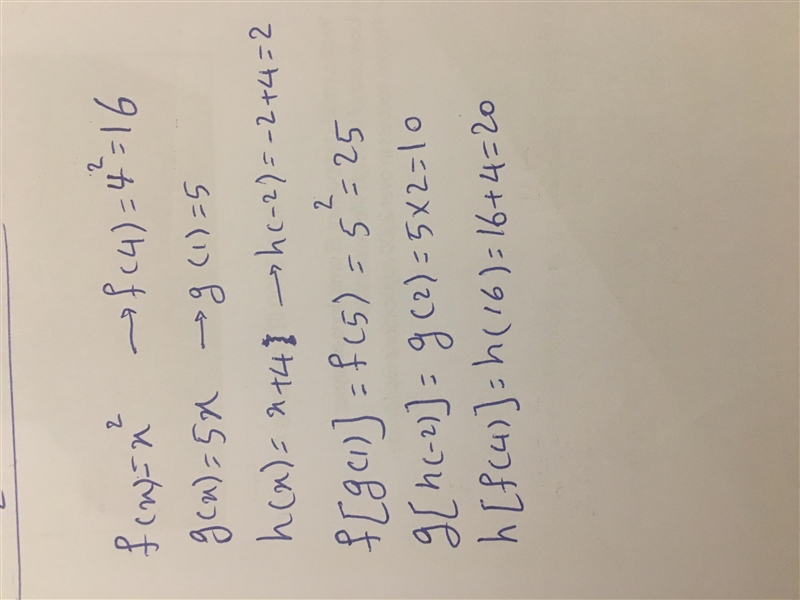 f(x)=x² →f(4)=4²=16
g(x)=5x →g(1)=5
h(x)=x+4 →h(-2)=-2+4=2
f[g(1)]=f(5)=5²=25
g[h(-2)]=g(2)=5×2=10
h[f(4)]=h(16)=16+4=20